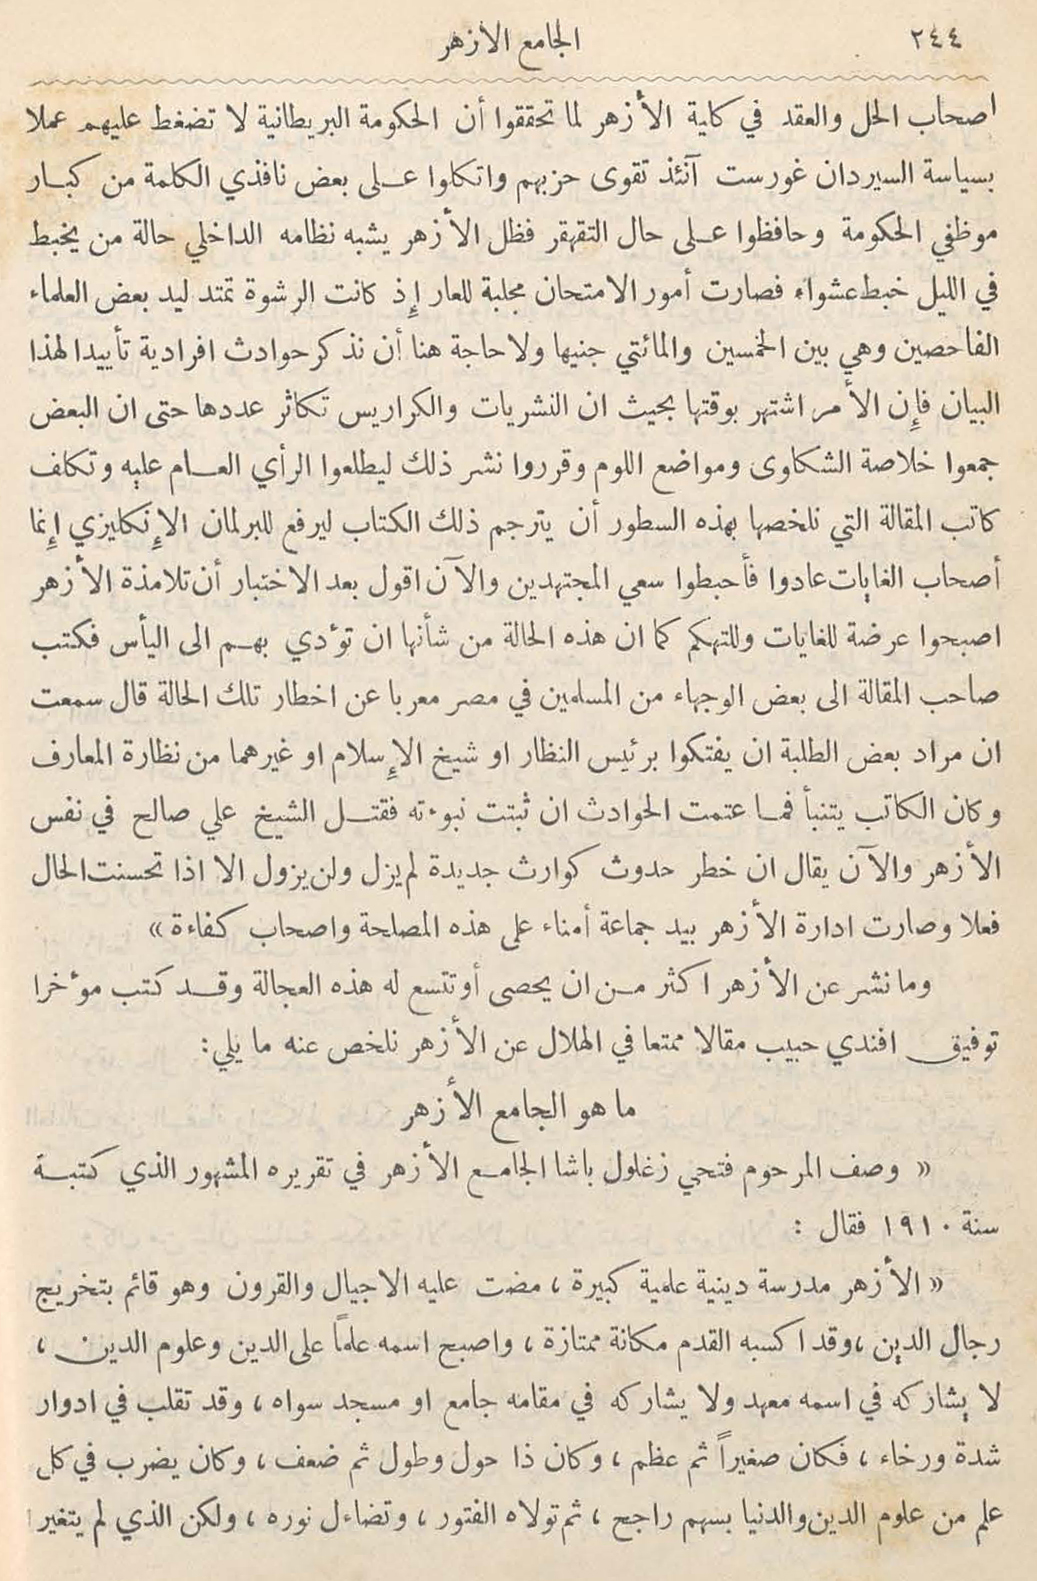 ٢٤٤
الجامع الأزهر
اصحاب الحل والعقد في كاية الأزهر لما تحققوا أن الحكومة البريطانية لا تضغط عليهم عملا
بسياسة السيردان غورست آنئذ تقوى حزبهم واتكلوا على بعض نافذي الكلمة من كبار
موظفي الحكومة وحافظوا على حال التقهقر فظل الأزهر يشبه نظامه الداخلي حالة من يخبط
في الليل خبط عشواء فصارت أمور الامتحان مجلبة للعار إذ كانت الرشوة تمتد ليد بعض العلماء
الفاحصين وهي بين الخمسين والمائتي جنيها ولا حاجة هنا أن نذكر حوادث افرادية تأييدا لهذا
البيان فإن الأمر اشتهر بوقتها بحيث ان النشريات والكراريس تكاثر عددها حتى ان البعض
جمعوا خلاصة الشكاوى ومواضع اللوم وقرروا نشر ذلك ليطلعوا الرأي العام عليه وتكلف
كاتب المقالة التي نلخصها بهذه السطور أن يترجم ذلك الكتاب ليرفع للبرلمان الإنكليزي إنما
أصحاب الغايات عادوا فأحبطوا سعي المجتهدين والآن اقول بعد الاختبار أن تلامذة الأزهر
اصبحوا عرضة للغايات وللتهكم كما ان هذه الحالة من شأنها ان تؤدي بهم الى اليأس فكتب
صاحب المقالة الى بعض الوجهاء من المسلمين في مصر معربا عن اخطار تلك الحالة قال سمعت
ان مراد بعض الطلبة ان يفتكوا برئيس النظار او شيخ الإسلام او غيرهما من نظارة المعارف
وكان الكاتب يتنبأ فما عتمت الحوادث ان ثبتت نبوءته فقتل الشيخ علي صالح في نفس
الأزهر والآن يقال ان خطر حدوث كوارث جديدة لم يزل ولن يزول الا اذا تحسنت الحال
فعلا وصارت ادارة الأزهر بيد جماعة أمناء على هذه المصلحة واصحاب كفاءة»
وما نشر عن الأزهر اكثر من ان يحصى أو تتسع له هذه العجالة وقد كتب مؤخرا
توفيق افندي حبيب مقالا ممتعا في الهلال عن الأزهر نلخص عنه ما يلي:
ما هو الجامع الأزهر
« وصف المرحوم فتحي زغلول باشا الجامع الأزهر في تقريره المشهور الذي كتبة
سنة ١٩١٠ فقال :
« الأزهر مدرسة دينية علمية كبيرة ، مضت عليه الاجيال والقرون وهو قائم بتخريج
رجال الدين ، وقد اكسبه القدم مكانة ممتازة ، واصبح اسمه علماً على الدين وعلوم الدين ،
لا يشاركه في اسمه معهد ولا يشاركه في مقامه جامع او مسجد سواه ، وقد تقلب في ادوار
شدة ورخاء ، فكان صغيراً ثم عظم ، وكان ذا حول وطول ثم ضعف ، وكان يضرب في كل
علم من علوم الدين والدنيا بسهم راجح ، ثم تولاه الفتور ، وتضاءل نوره ، ولكن الذي لم يتغير